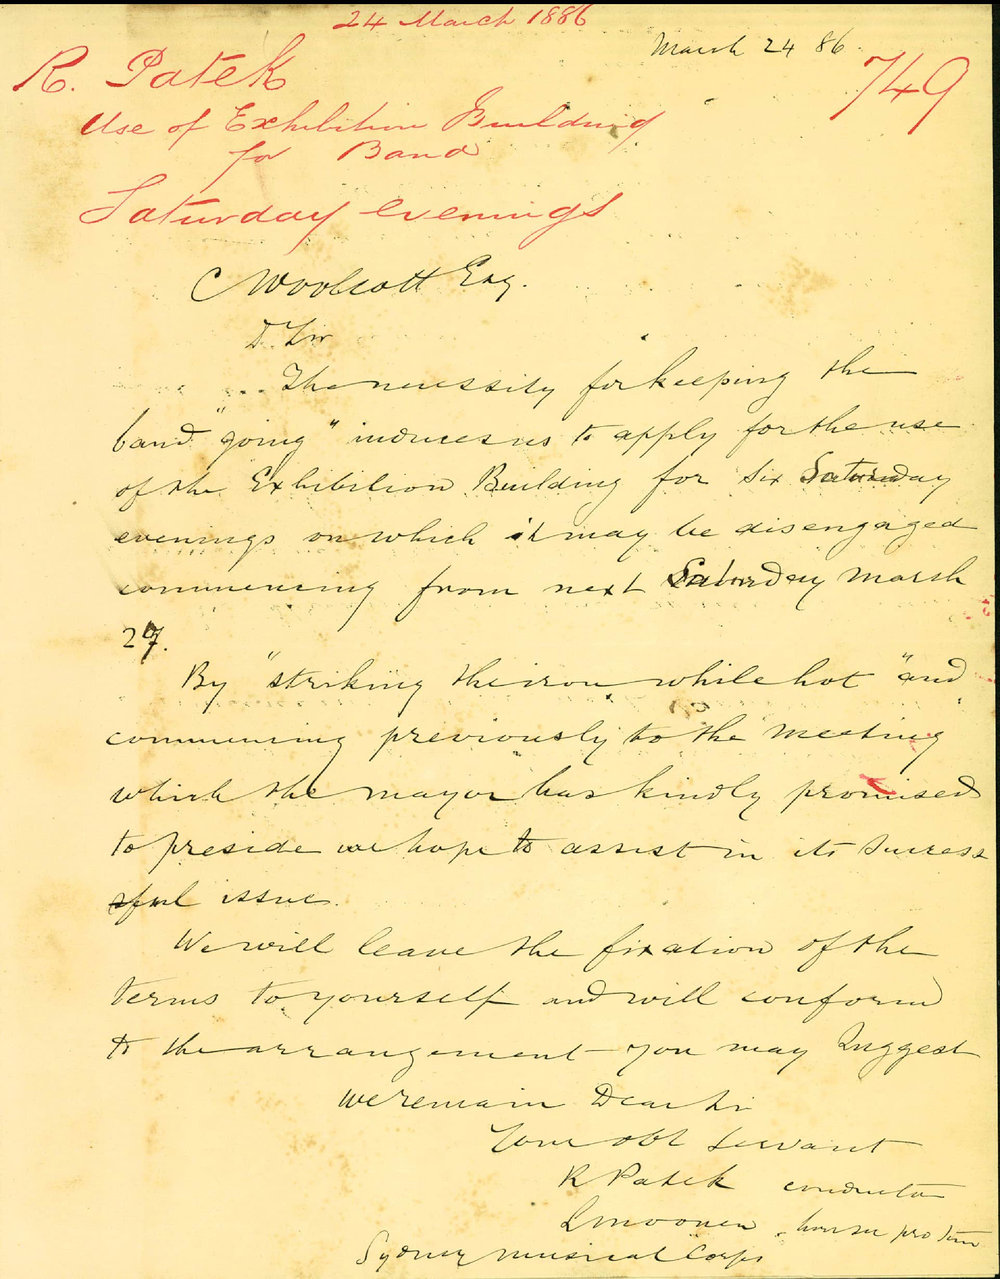 24 March 1886
March 24 86.
749
R. Patek
Use of Exhibition Building
for Band
Saturday evenings
C Woolcott Esq.
D. Sir
The necessity for keeping the
band "going" induces us to apply for the use
of the Exhibition Building for six Saturday
evenings on which it may be disengaged
commencing from next Saturday March
27.
By "striking the iron while hot" and
commencing previously to the meeting
which the mayor has kindly promised
to preside we hope to assist in its success
ful issue.
We will leave the fixation of the
terms to yourself and will conform
to the arrangement you may suggest
We remain Dear Sir
Your obt servant
R Patek conductor
pro tem
Sydney Musical Corps